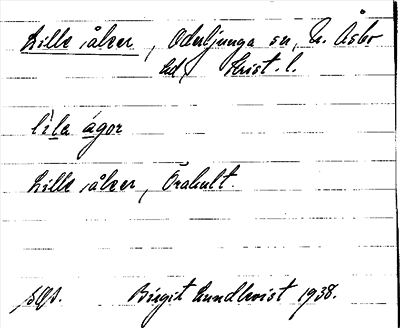 Lille åker, Oderljunga sn, N. Åsbo
hd, Krist. l.
lila ågor
Lille åker, Örahult.
Birgit Lundkvist 1938.